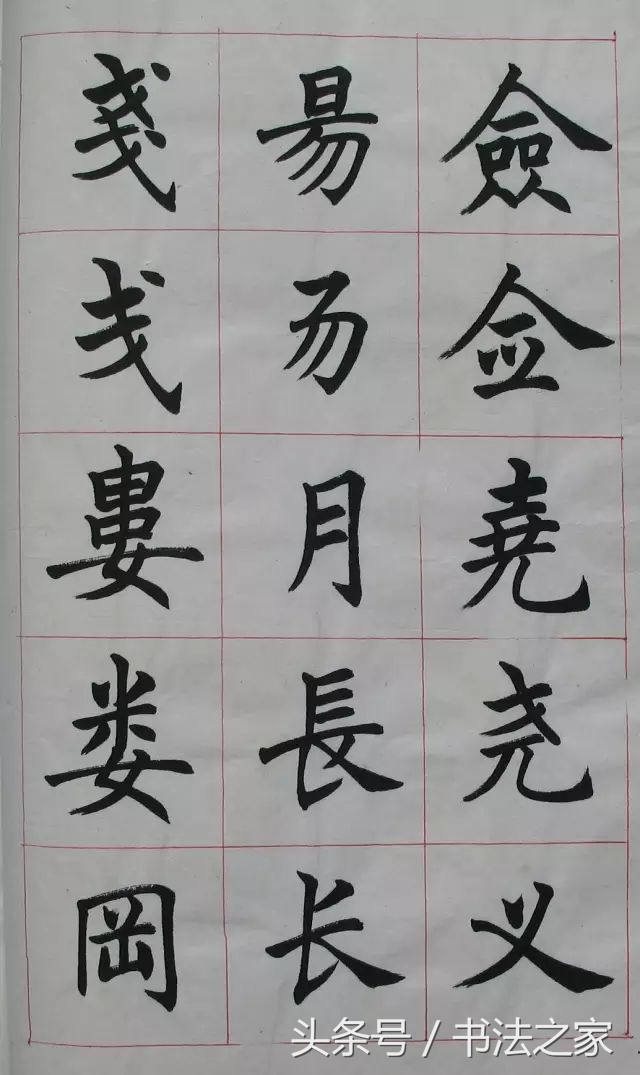 僉佥堯尧义
昜𠃓月長长
戔戋婁娄岡
头条号/书法之家